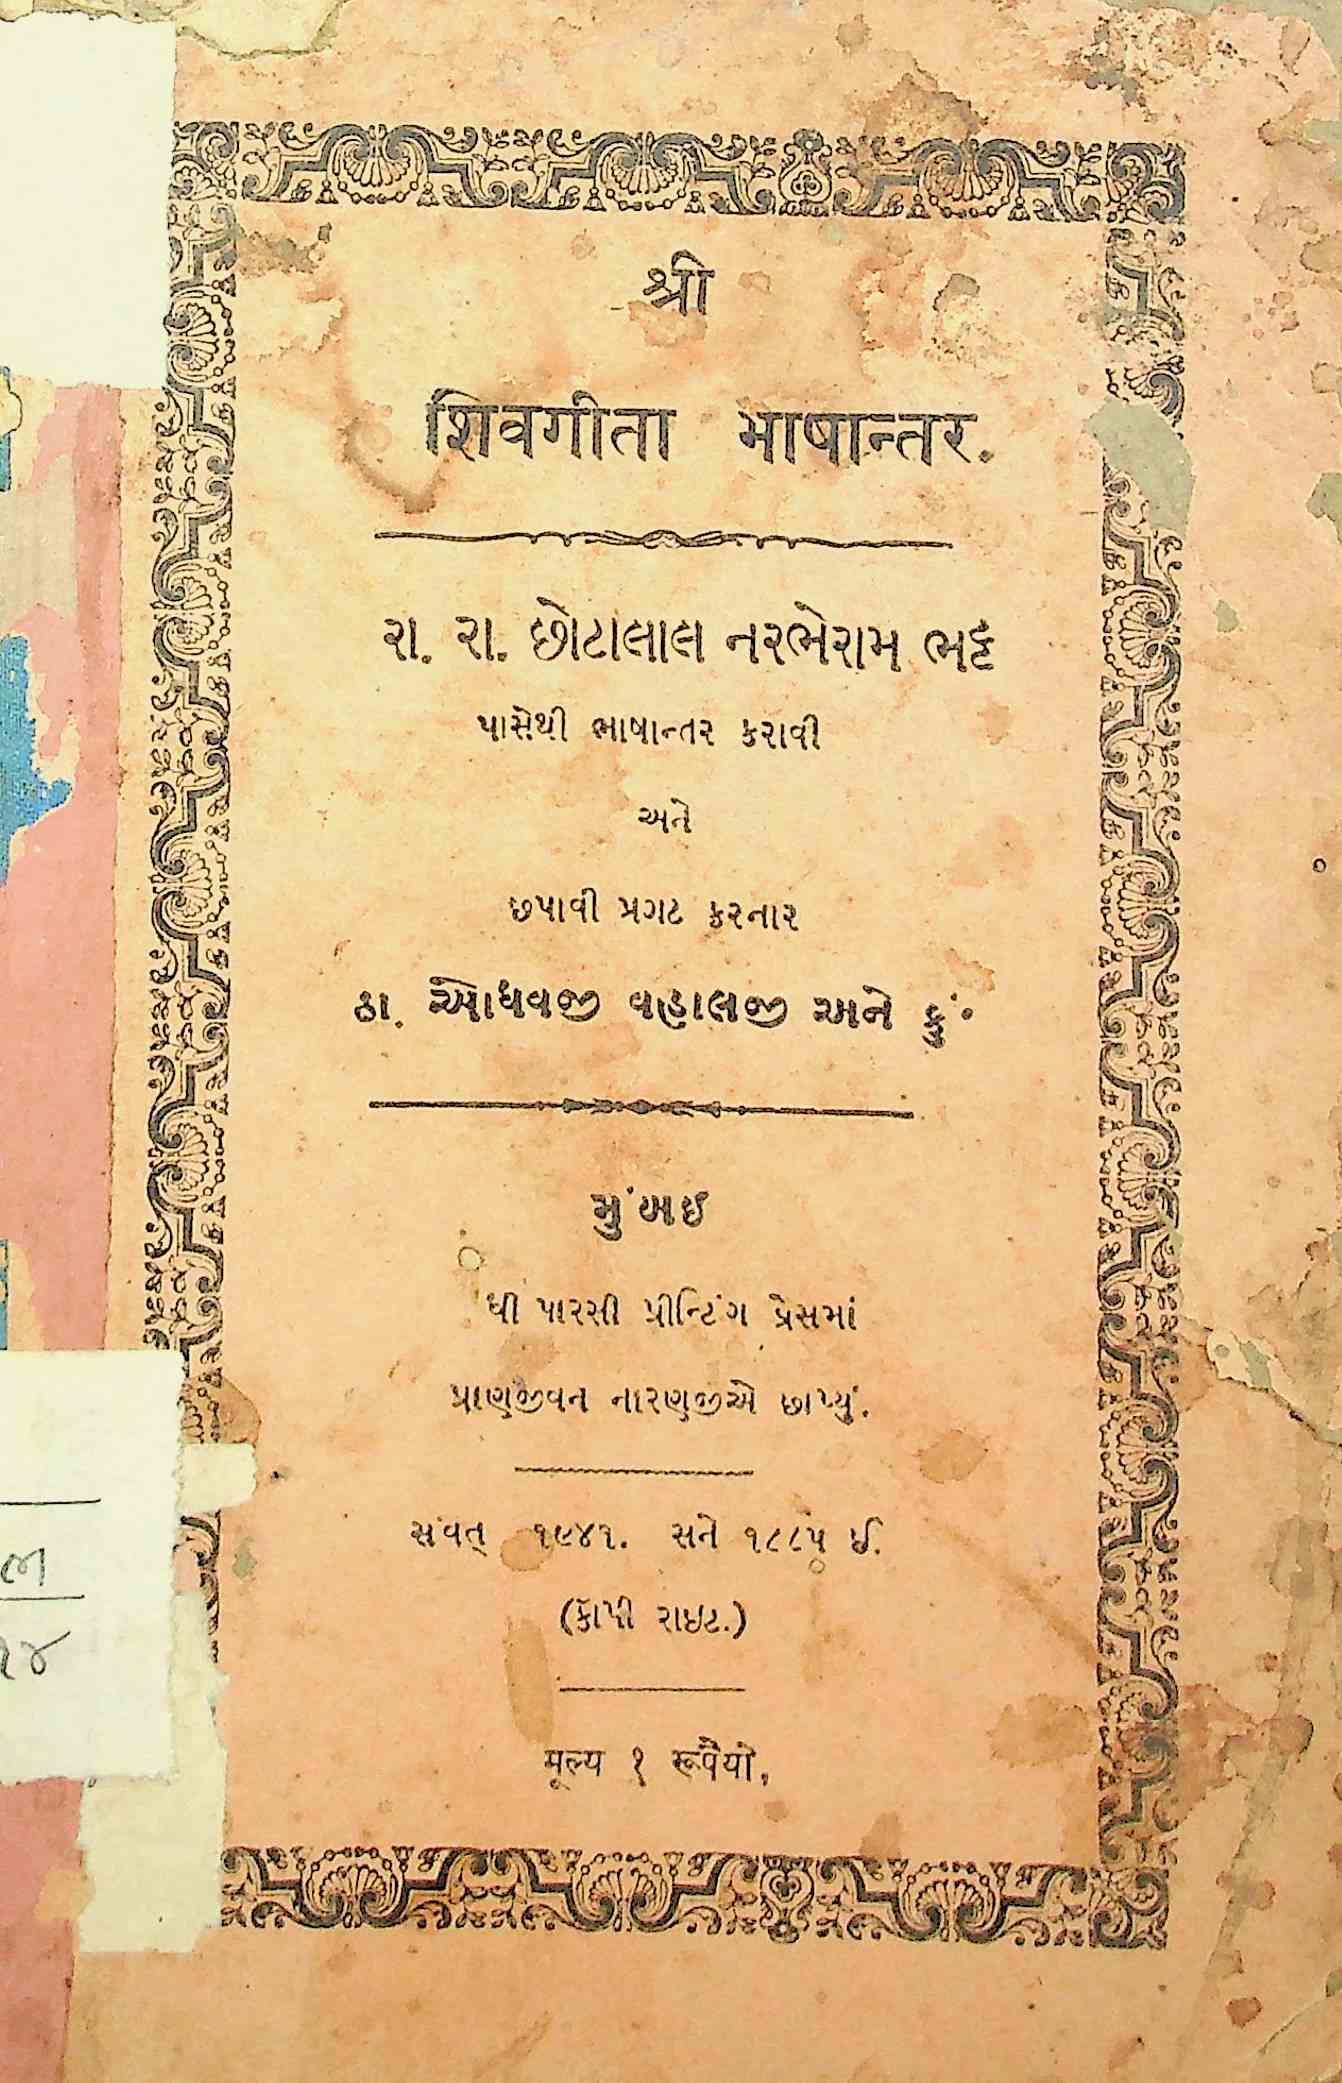 श्री
शिवगीता भाषान्तर.
રા. રા. છોટાલાલ નરભેરામ ભટ્ટ
પાસેથી ભાષાન્તર કરાવી
અને
છપાવી પ્રગટ કરનાર
ઠા. ઓધવજી વહાલજી અને કું.
મુંબઈ
ધી પારસી પ્રીન્ટિંગ પ્રેસમાં
પ્રાણજીવન નારણજીએ છાપ્યું.
સંવત્ ૧૯૪૧. સને ૧૮૮૫ ઈ.
(કૉપી રાઇટ.)
મૂલ્ય ૧ રૂપૈયો.